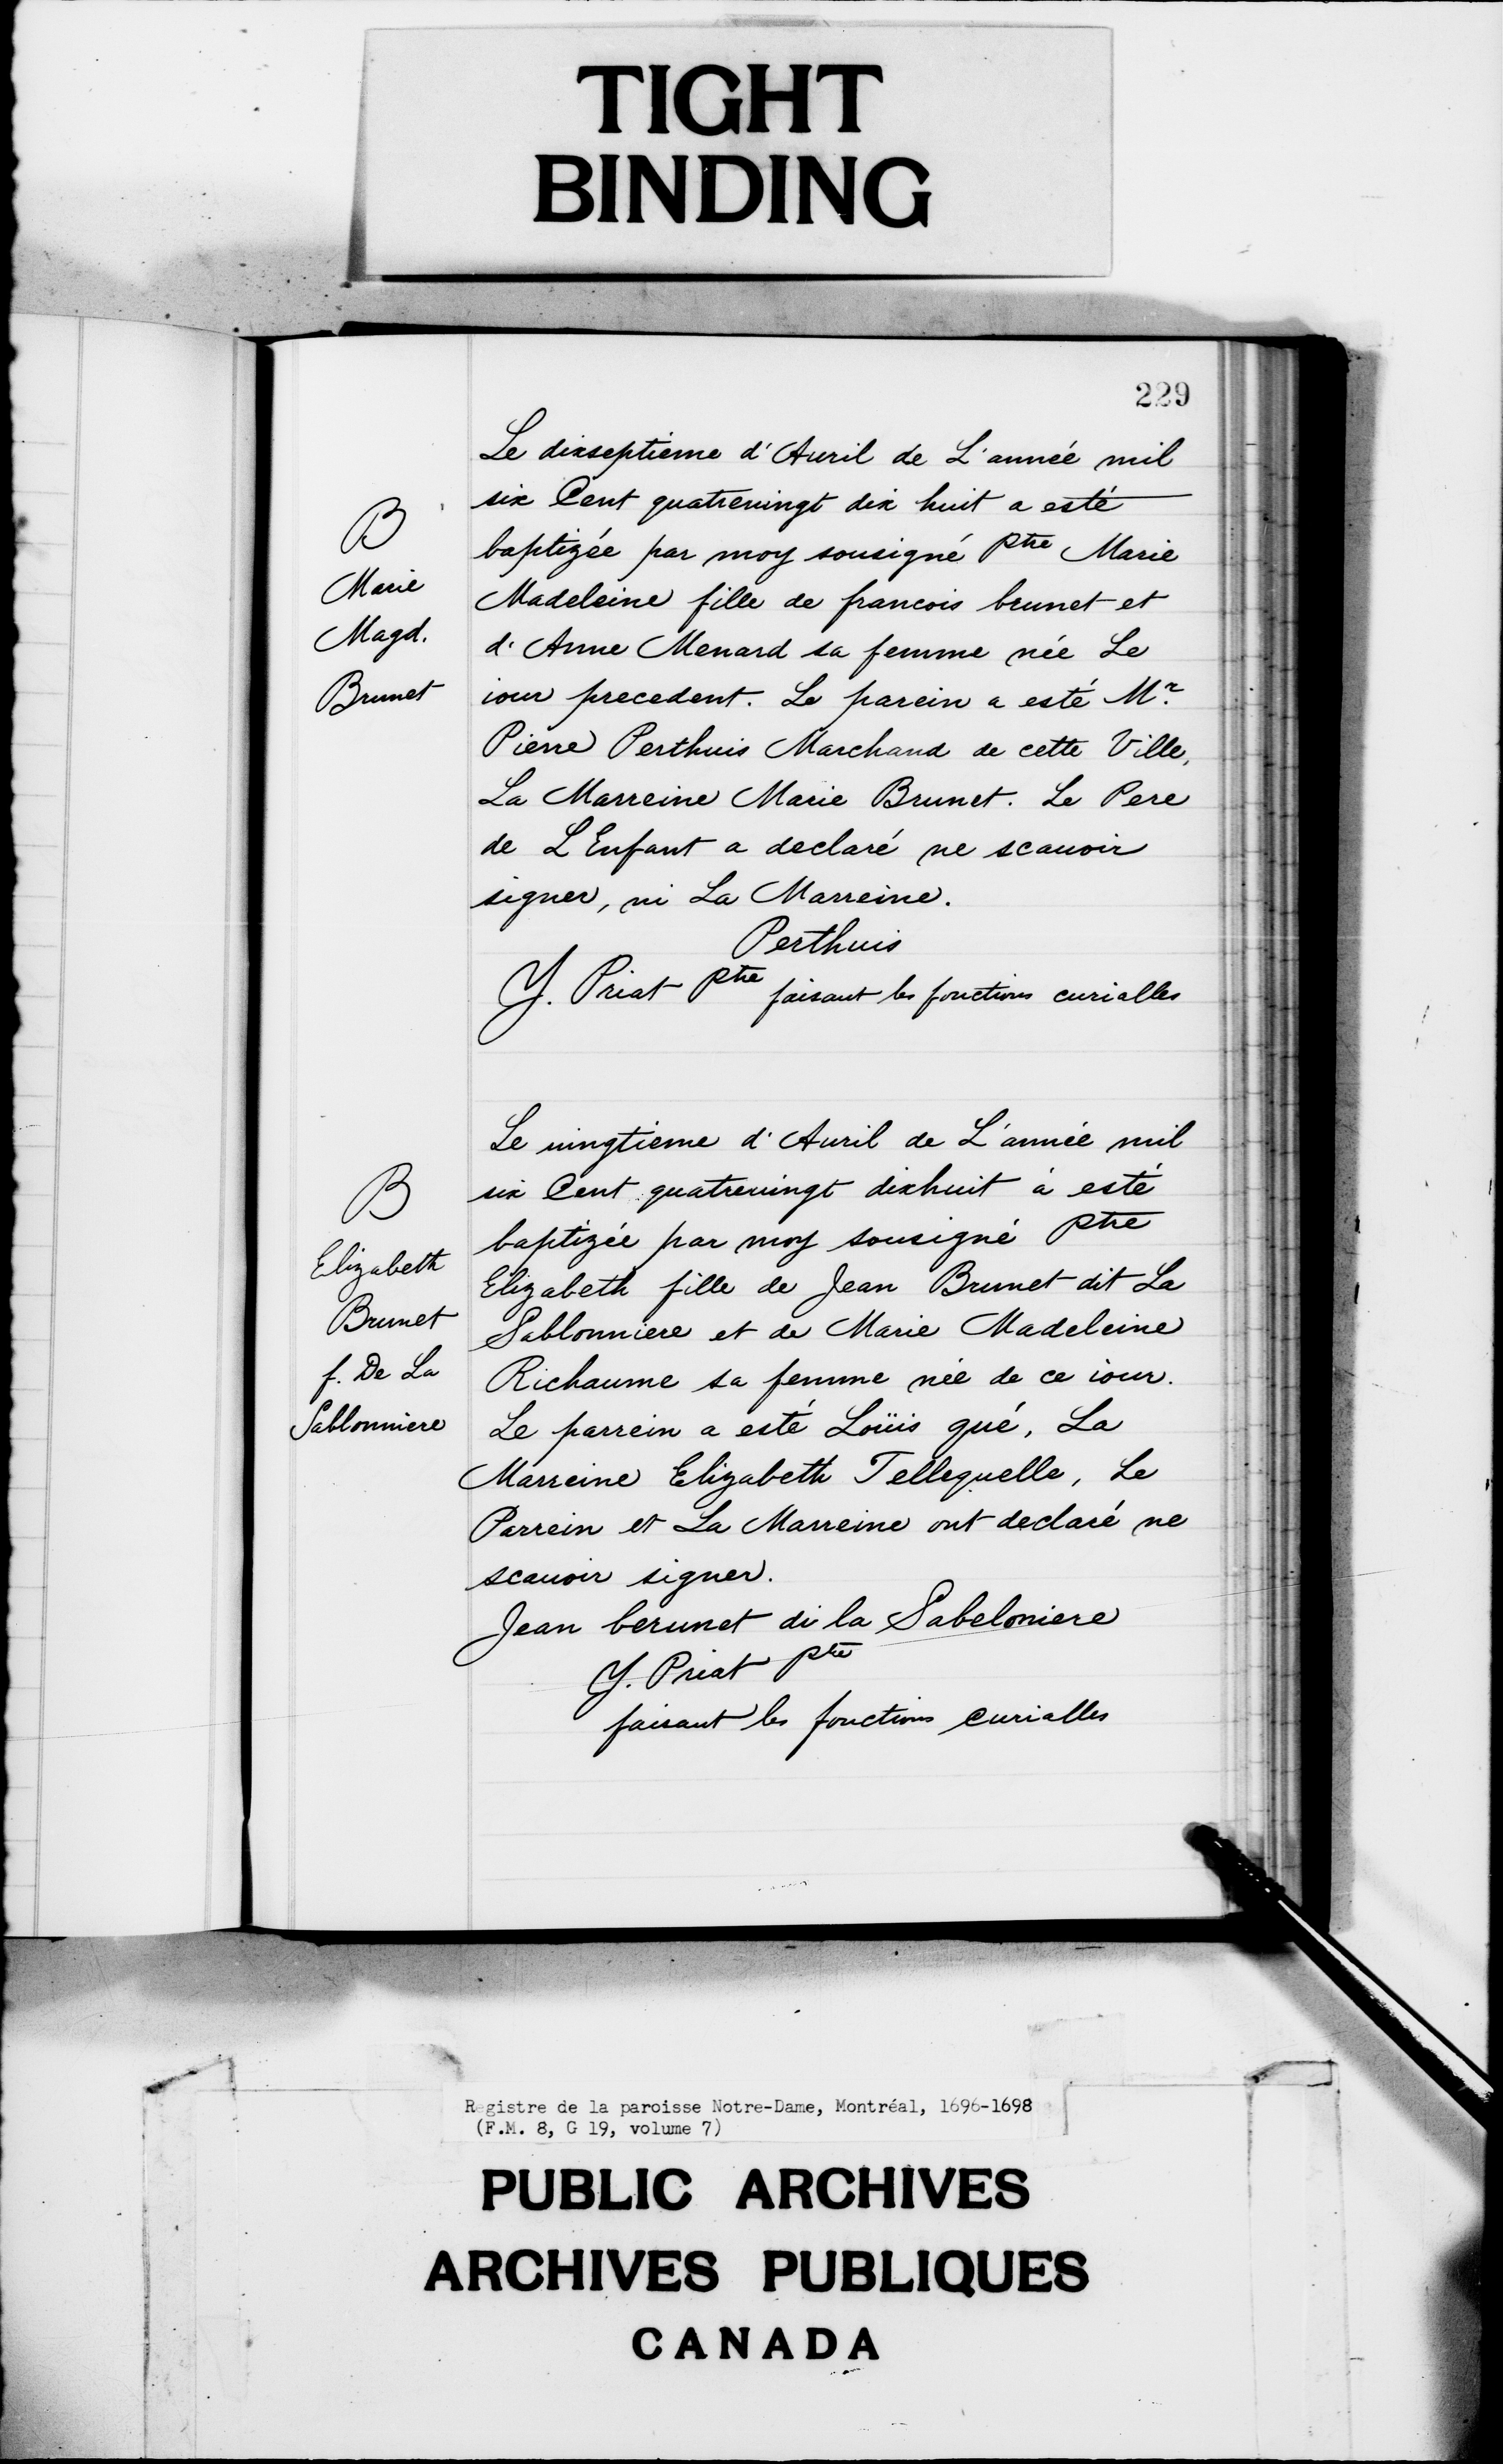 TIGHT
BINDING
229
Le dixseptieme d'Auril de L'année mil
six Cent quatreuingt dix huit a esté
baptizée par moy sousigné ptre Marie
Madeleine fille de francois brunet et
d'Anne Menard sa femme née Le
iour precedent. Le parein a esté Mr.
Pierre Perthuis Marchand de cette Ville,
La Marreine Marie Brunet. Le Pere
de L'Enfant a declaré ne scauoir
signer, ni La Marreine.
Perthuis
Y. Priat ptre faisant les fonctions curialles
B
Marie
Magd.
Brunet
Le uingtieme d'Auril de L'année mil
six Cent quatreuingt dixhuit à esté
baptizée par moy sousigné ptre
Elizabeth fille de Jean Brunet dit La
Sablonniere et de Marie Madeleine
Richaume sa femme née de ce iour.
Le parrein a esté Loüis gué, La
Marreine Elizabeth Tellequelle, Le
Parrein et La Marreine ont declaré ne
scauoir signer.
Jean berunet di la Sabeloniere
Y. Priat ptre
faisant les fonctions curialles
B
Elizabeth
Brunet
f. De La
Sablonniere
Registre de la paroisse Notre-Dame, Montréal, 1696-1698
(F.M. 8, G 19, volume 7)
PUBLIC ARCHIVES
ARCHIVES PUBLIQUES
CANADA